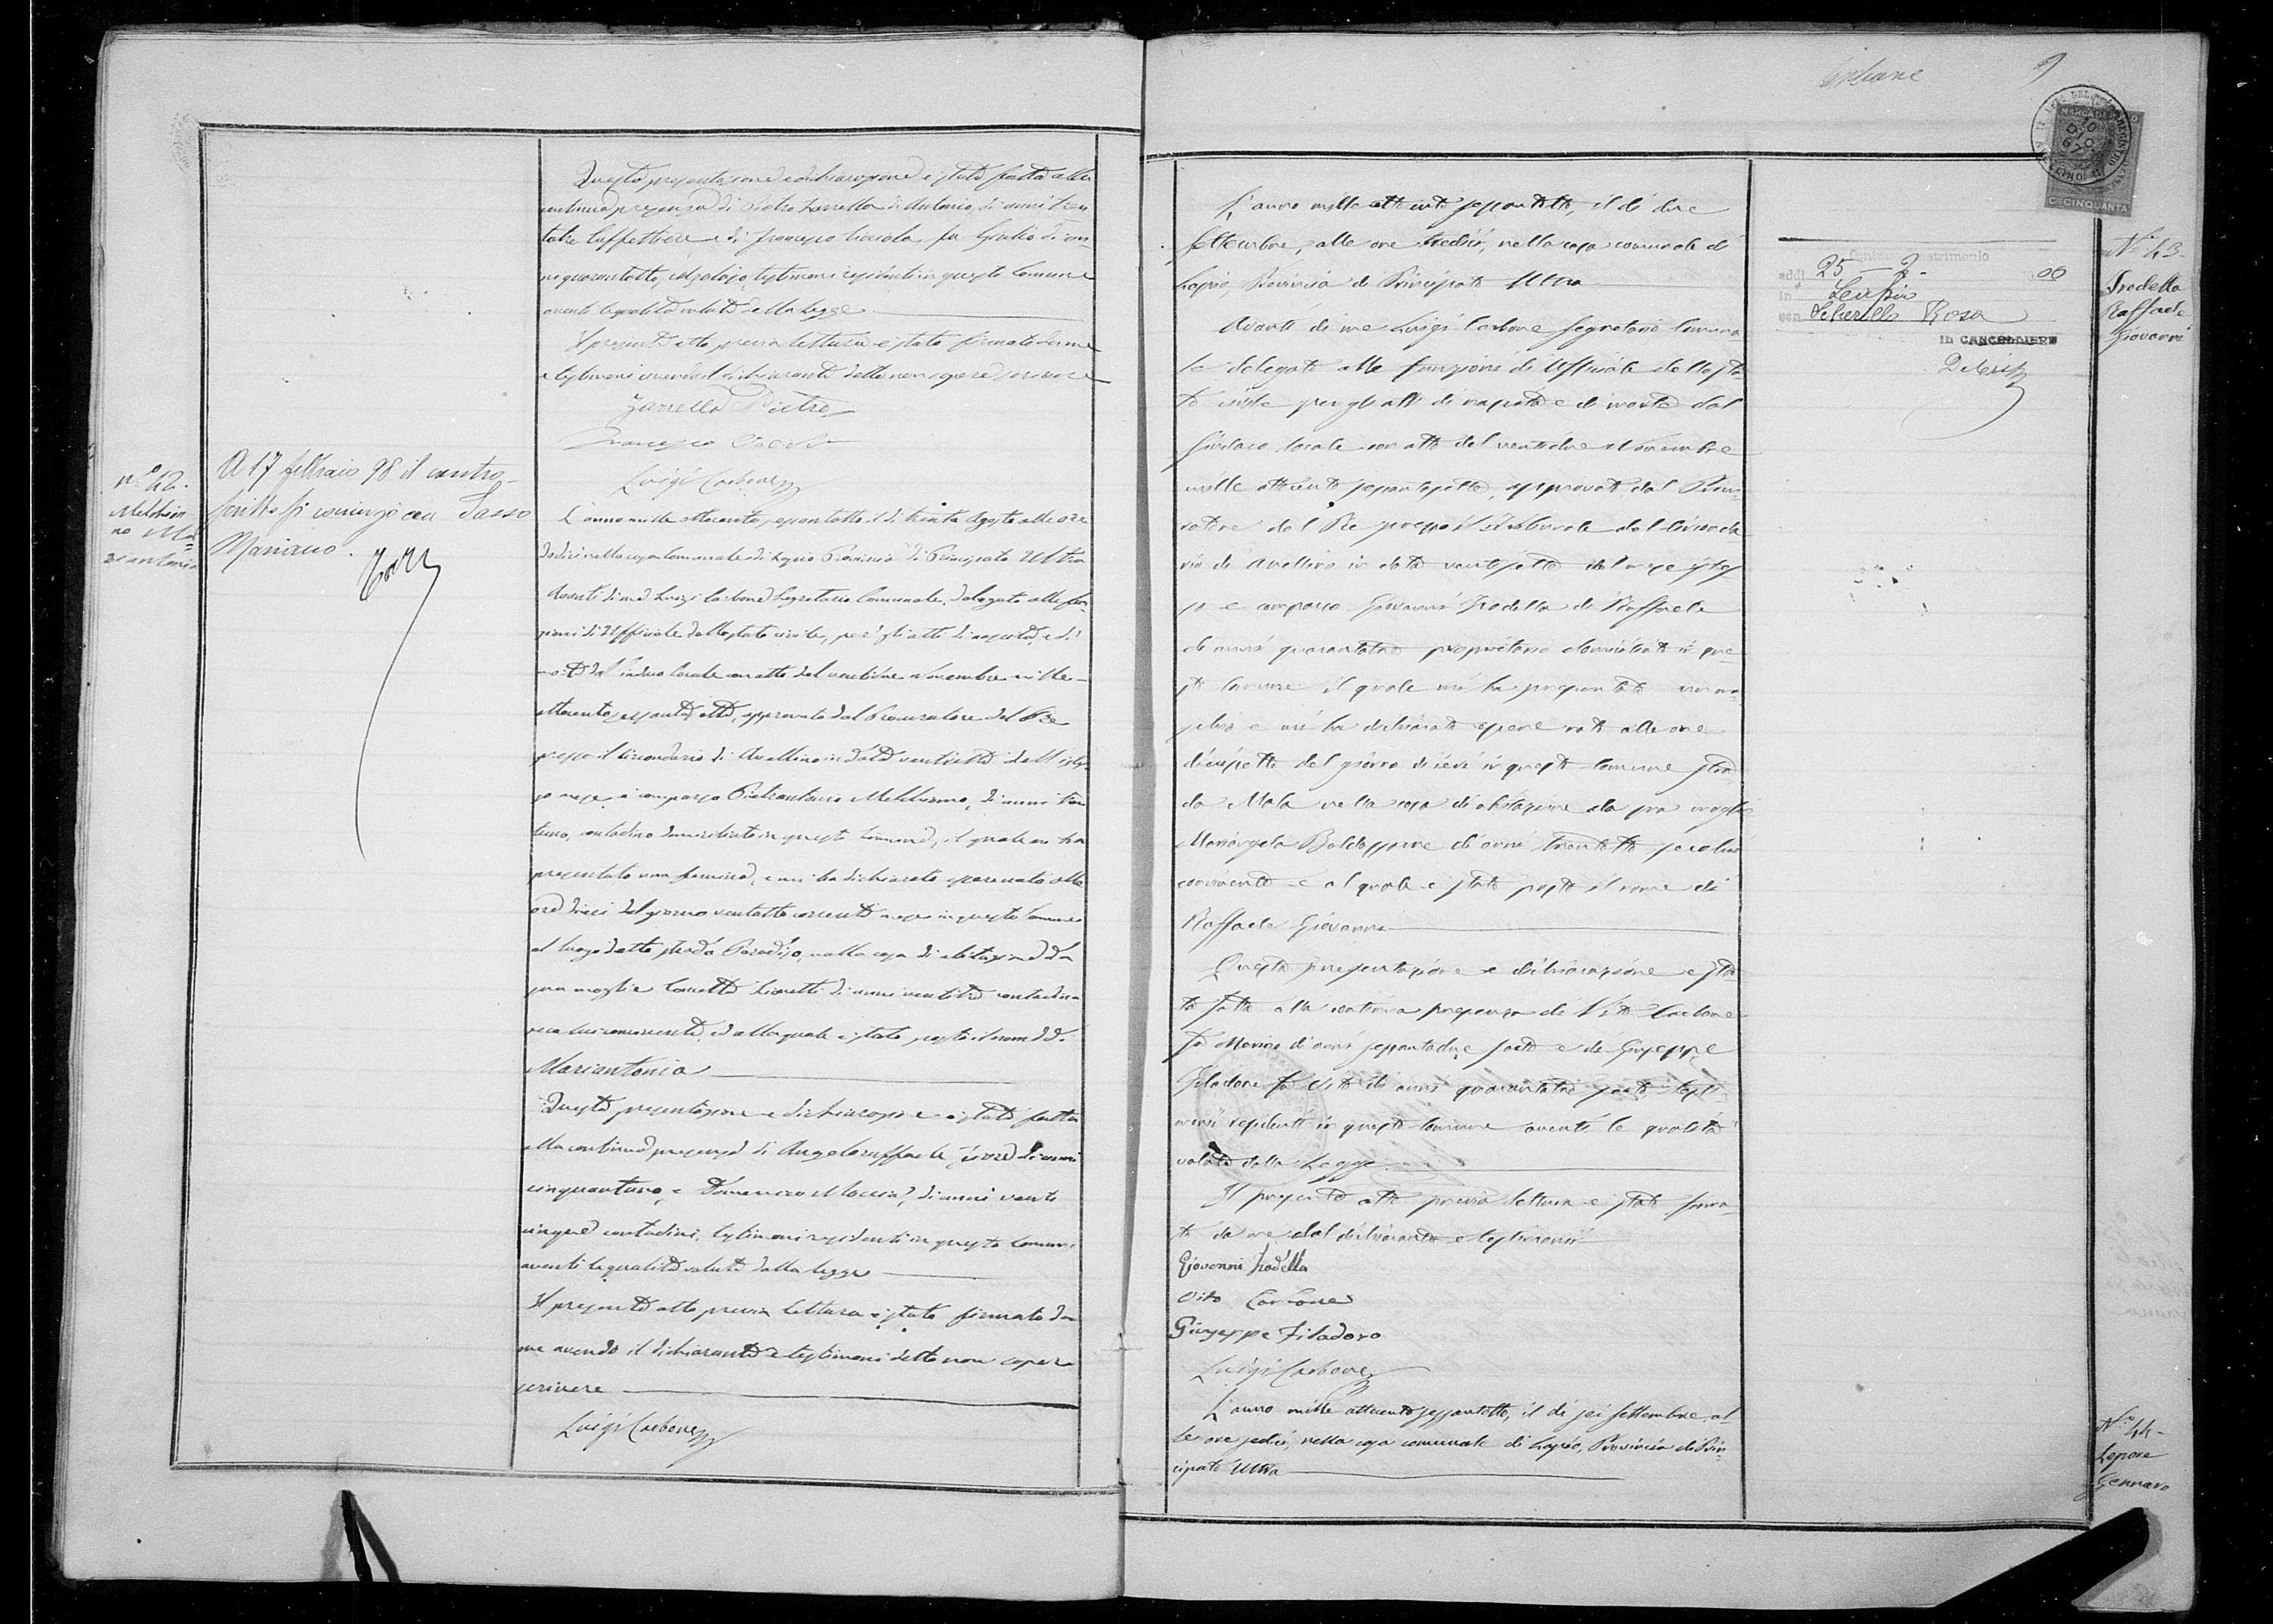 Questa presentazione e dichiarazione è stata fatta alla
continua presenza di Pietro Zarrella di Antonio, di anni tren
tatre e di Francesco Ciociola fu Giulio di an
ni quarantotto, calzolajo, testimoni residenti in questo Comune
aventi le qualità volute dalla Legge
Il presente atto previa lettura è stato firmato da me
e testimoni avendo il dichiarante detto non sapere scrivere
Zarrella Pietro
Francesco
Luigi Carbone
n.º 42.
Melchion
no Ma
riantonia
A 17 febbraio 98 il contro
scritto si coniugò con Sasso
Mariano.
L'anno mille ottocento sessantotto, il dì trenta Agosto alle ore
dodici nella casa Comunale di Lapio Provincia di Principato Ultra
Avanti di me Luigi Carbone Segretario Comunale, delegato alle fun
zioni di Uffiziale dello stato civile, per gli atti di nascita, e di
morte dal Sindaco locale con atto del ventidue Novembre mille
ottocento sessanta, approvato dal Procuratore del Re
presso il Circondario di Avellino in data ventisette dell'istes
so mese è comparso Pietrantonio Melchionno, di anni tren
tuno, contadino domiciliato in questo Comune, il quale mi ha
presentato una femina, e mi ha dichiarato essere nata alle
ore dieci del giorno ventotto corrente mese in questo Comune
al luogo detto strada Paradiso, nella casa di abitazione da
sua moglie Lionetti di anni ventitre contadina
seco lui convivente, ed alla quale è stato posto il nome di
Mariantonia
Questa presentazione e dichiarazione è stata fatta
alla continua presenza di Angeloraffaele di anni
cinquantuno, e Domenico Moccia, di anni venti
cinque contadini, testimoni residenti in questo Comune
aventi le qualità volute dalla legge
Il presente atto previa lettura è stato firmato da
me avendo il dichiarante e testimoni detto non sapere
scrivere
Luigi Carbone
9
10
DIC
67
MARCA DA BOLLO
C.mi CINQUANTA
L'anno mille ottocento sessantotto, il dì due
Settembre, alle ore tredici, nella casa comunale di
Lapio, Provincia di Principato Ultra
Avanti di me Luigi Carbone Segretario Comuna
le delegato alle funzioni di Ufficiale dello sta
to civile per gli atti di nascita e di morte dal
Sindaco locale con atto del ventidue Novembre
mille ottocento sessantasette, approvato dal Procu
ratore del Re presso il Tribunale del Circonda
rio di Avellino in data ventisette del mese istes
so è comparso Giovanni Trodella di Raffaele
di anni quarantatre proprietario domiciliato in que
sto Comune il quale mi ha presentato un ma
schio e mi ha dichiarato essere nato alle ore
diciasette del giorno di ieri in questo Comune stra
da Mala nella casa di abitazione da sua moglie
Mariangela Baldassarre di anni trentotto seco lui
convivente e al quale è stato posto il nome di
Raffaele Giovanni
Questa presentazione e dichiarazione è sta
ta fatta alla continua presenza di Vito Carbone
fu Marino di anni sessantadue sarto e di Giuseppe
Filadoro fu Vito di anni quarantatre sarto testi
monii residenti in questo Comune aventi le qualità
volute dalla Legge
Il presente atto previa lettura è stato firma
to da me dal dichiarante e testimonii
Giovanni Trodella
Vito Carbone
Giuseppe Filadoro
Luigi Carbone
Contrasse matrimonio
addì 25 - 2 - 06
in Lapio
con Rosa
IL CANCELLIERE
N.º 43
Trodella
Raffaele
Giovanni
L'anno mille ottocento sessantotto, il dì sei Settembre, al
le ore sedici, nella casa comunale di Lapio, Provincia di Prin
cipato Ultra
N.º 44
Lepore
Gennaro